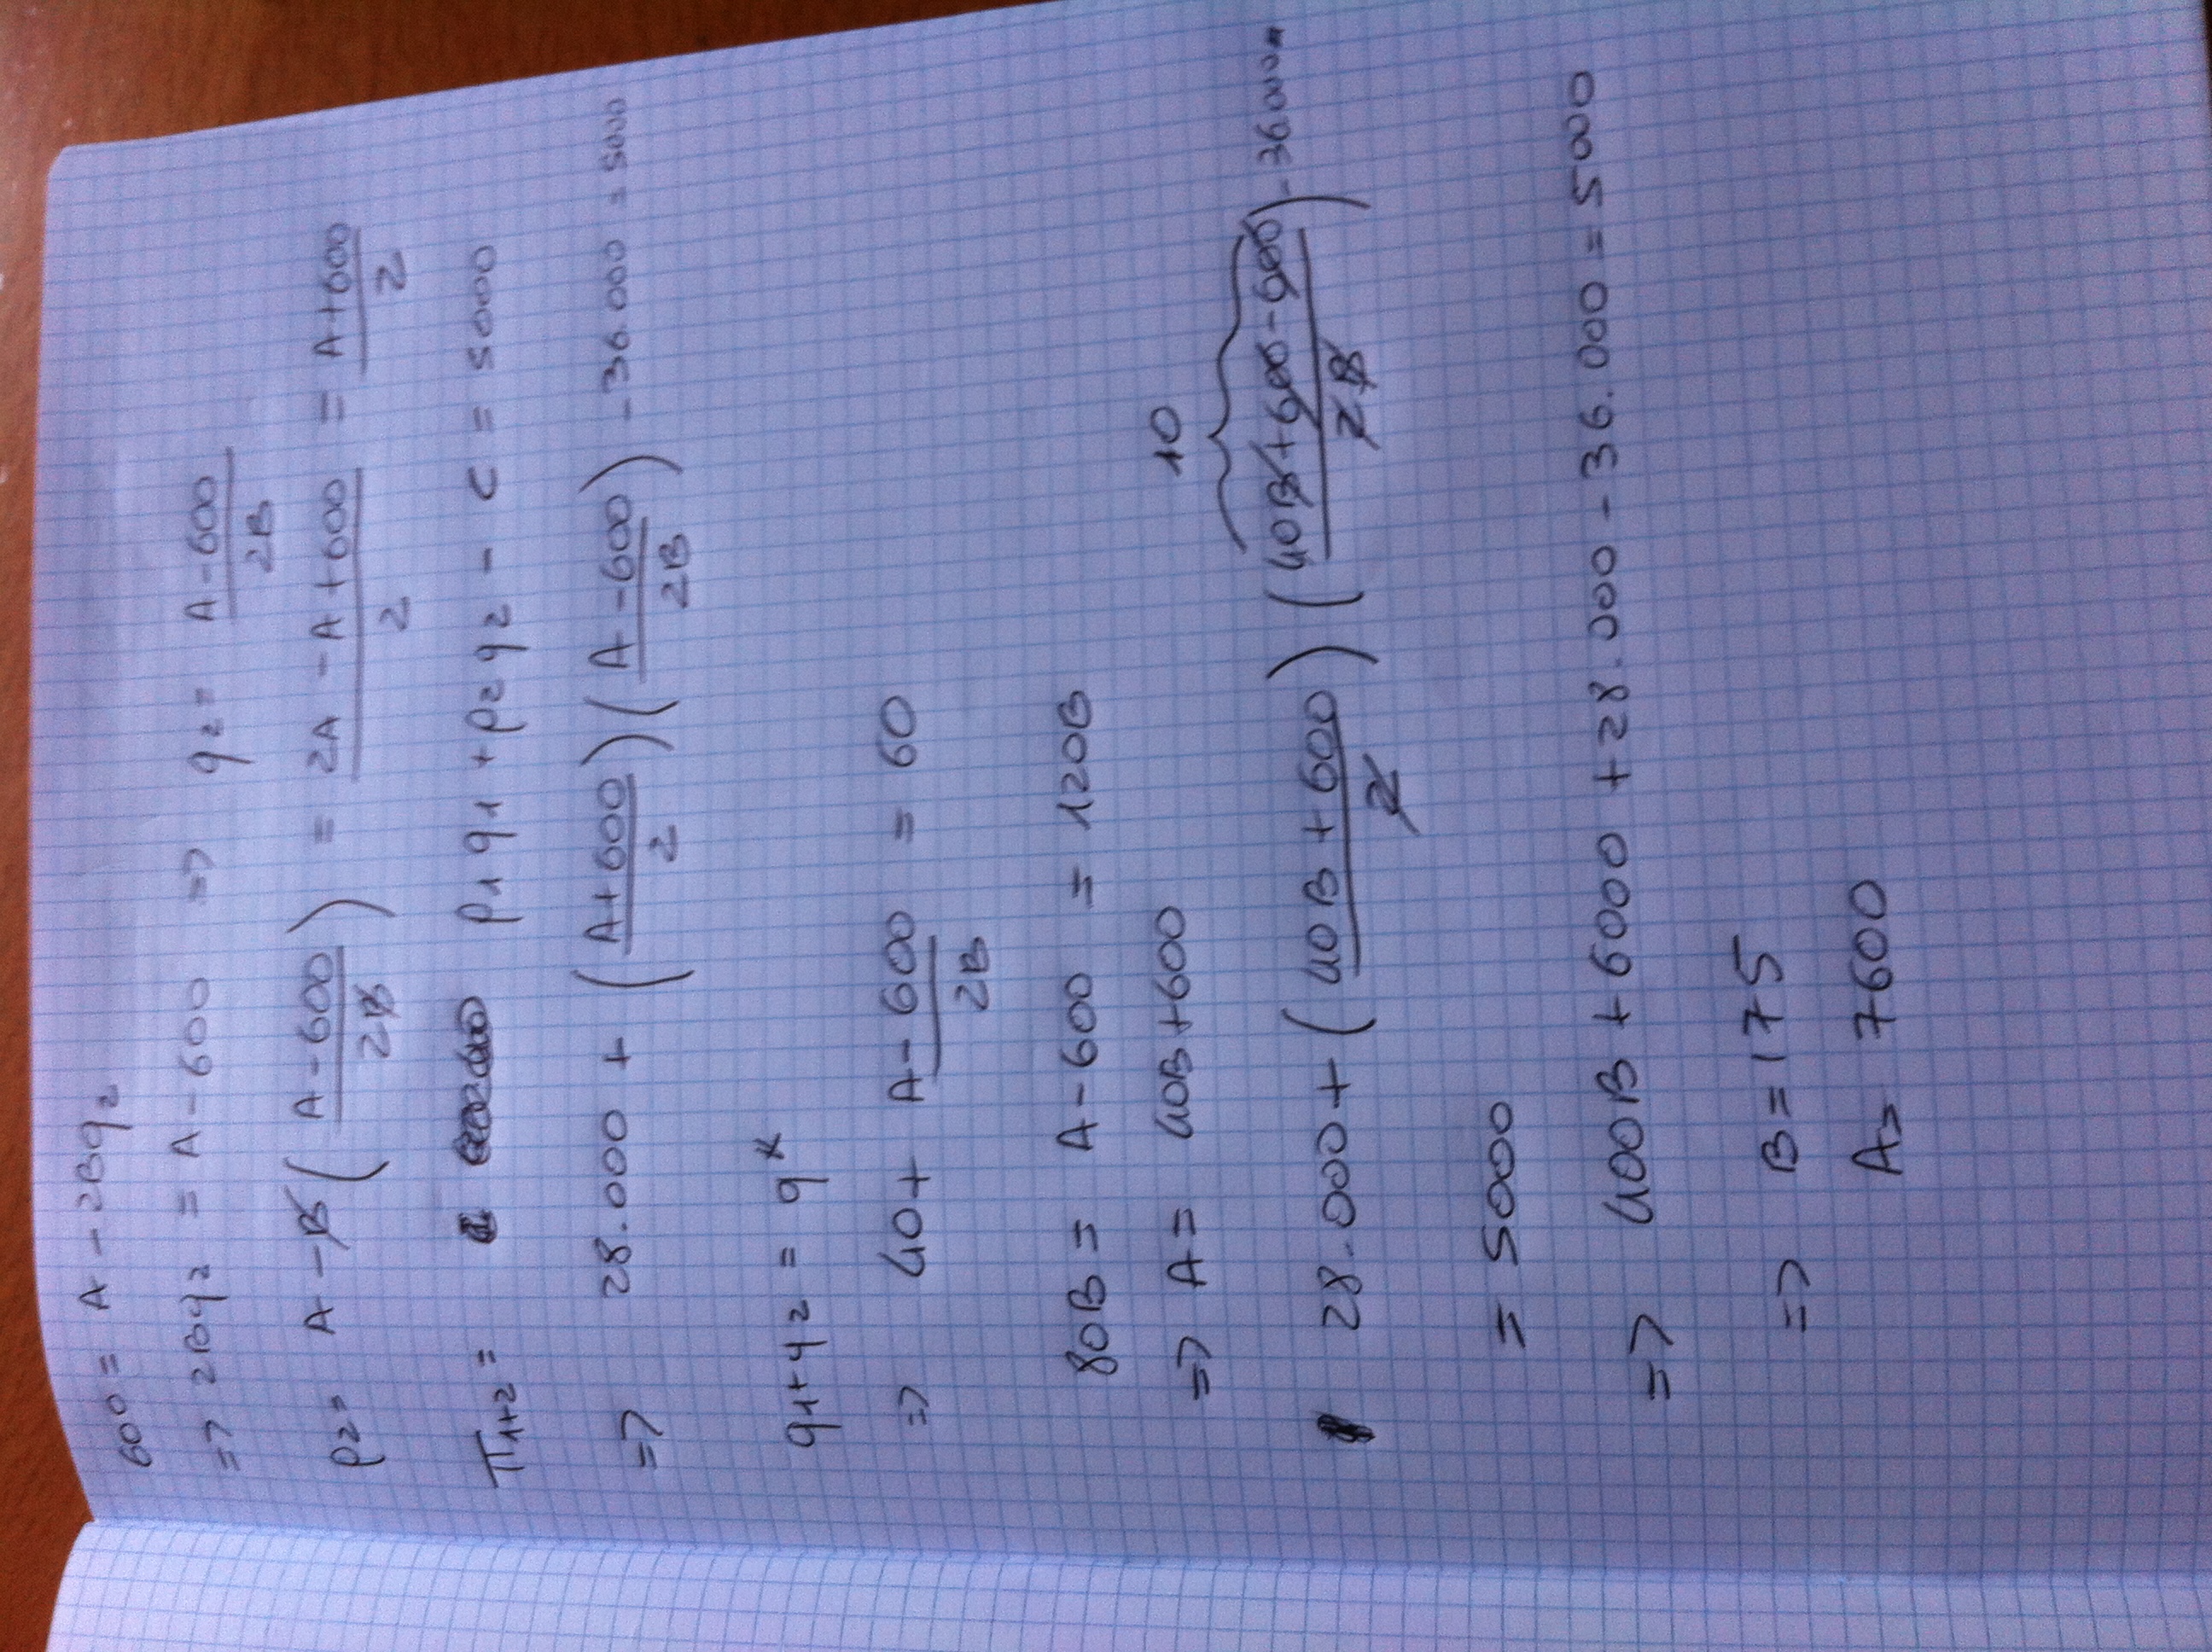 600 = A - 2Bq2
=> 2Bq2 = A - 600 => q2 = (A - 600)/2B
p2 = A - B ((A - 600)/2B) = (2A - A + 600)/2 = (A + 600)/2
π1+2 = p1 q1 + p2 q2 - C = 5000
=> 28.000 + ((A + 600)/2) ((A - 600)/2B) - 36.000 = 5000
q1 + q2 = q*
=> 40 + (A - 600)/2B = 60
80B = A - 600 = 120B
=> A = 40B + 600
10
28.000 + ((40B + 600)/2) ((40B + 600 - 600)/2B) - 36.000
= 5000
=> 400B + 6000 + 28.000 - 36.000 = 5000
=> B = 175
A = 7600